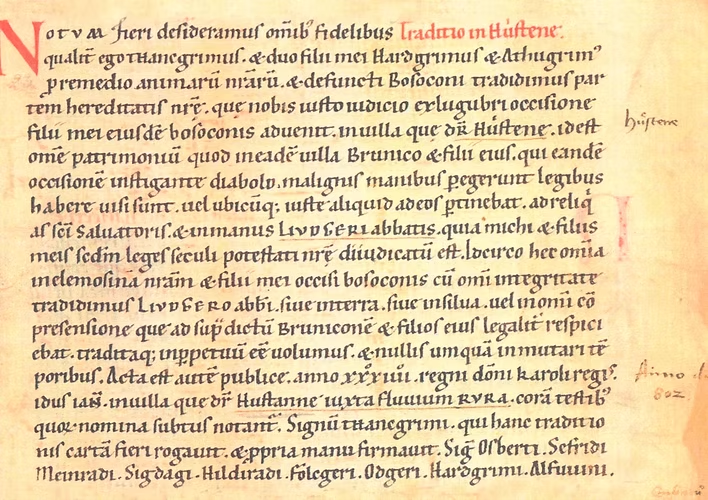 Notum fieri desideramus omĩb' fidelibus Traditio in Hůstene.
qualit̃ ego thancgrimus. & duo filii mei Hardgrimus & Athugrim'
p remedio animarũ nrãrũ. & defuncti Bosoconi tradidimus par
tem hereditatis nrę̃. quę nobis iusto iudicio ex lugubri occisione
filii mei eiusdẽ bosoconis aduenit. in uilla que dr̃ Hůstene. id est
omẽ patrimoniũ quod in eadẽ uilla Brunico & filii eius. qui eandẽ
occisionẽ instigante diabolo. malignis manibus pegerunt legibus
habere uisi sunt. uel ubicũq; iuste aliquid ad eos ptinebat. ad reliq̃
as sc̃i Saluatoris. & in manus LIUDGERI abbatis. quia michi & filiis
meis scdm̃ leges seculi potestati nrę̃ diiudicatũ est. Idcirco hec om̃ia
in elemosinã nrãm & filii mei occisi bosoconis cũ om̃i integritate
tradidimus LIUDGERO abb̃i. siue in terra. siue in silua. uel in om̃i cõ
presensione que ad sup̃ dictũ Bruniconẽ & filios eius legalit̃ respici
ebat. traditaq; inppetuũ eẽ uolumus. & nullis umquã inmutari tẽ
poribus. Acta est autẽ publice. anno xxxiiii. regni dõni karoli regis.
idus ian̄. in uilla que dr̃ Hustanne iuxta fluuium RURA. corã testib'
quoȓ nomina subtus notant̃. Signũ thancgrimi. qui hanc traditio
nis cartã fieri rogauit. & ppria manu firmauit. Sig̃ Osberti. Sefridi
Meinradi. Sigdagi. Hildiradi. Folcgeri. Odgeri. Hardgrimi. Alfuuini.
hůstene
Anno d.
802